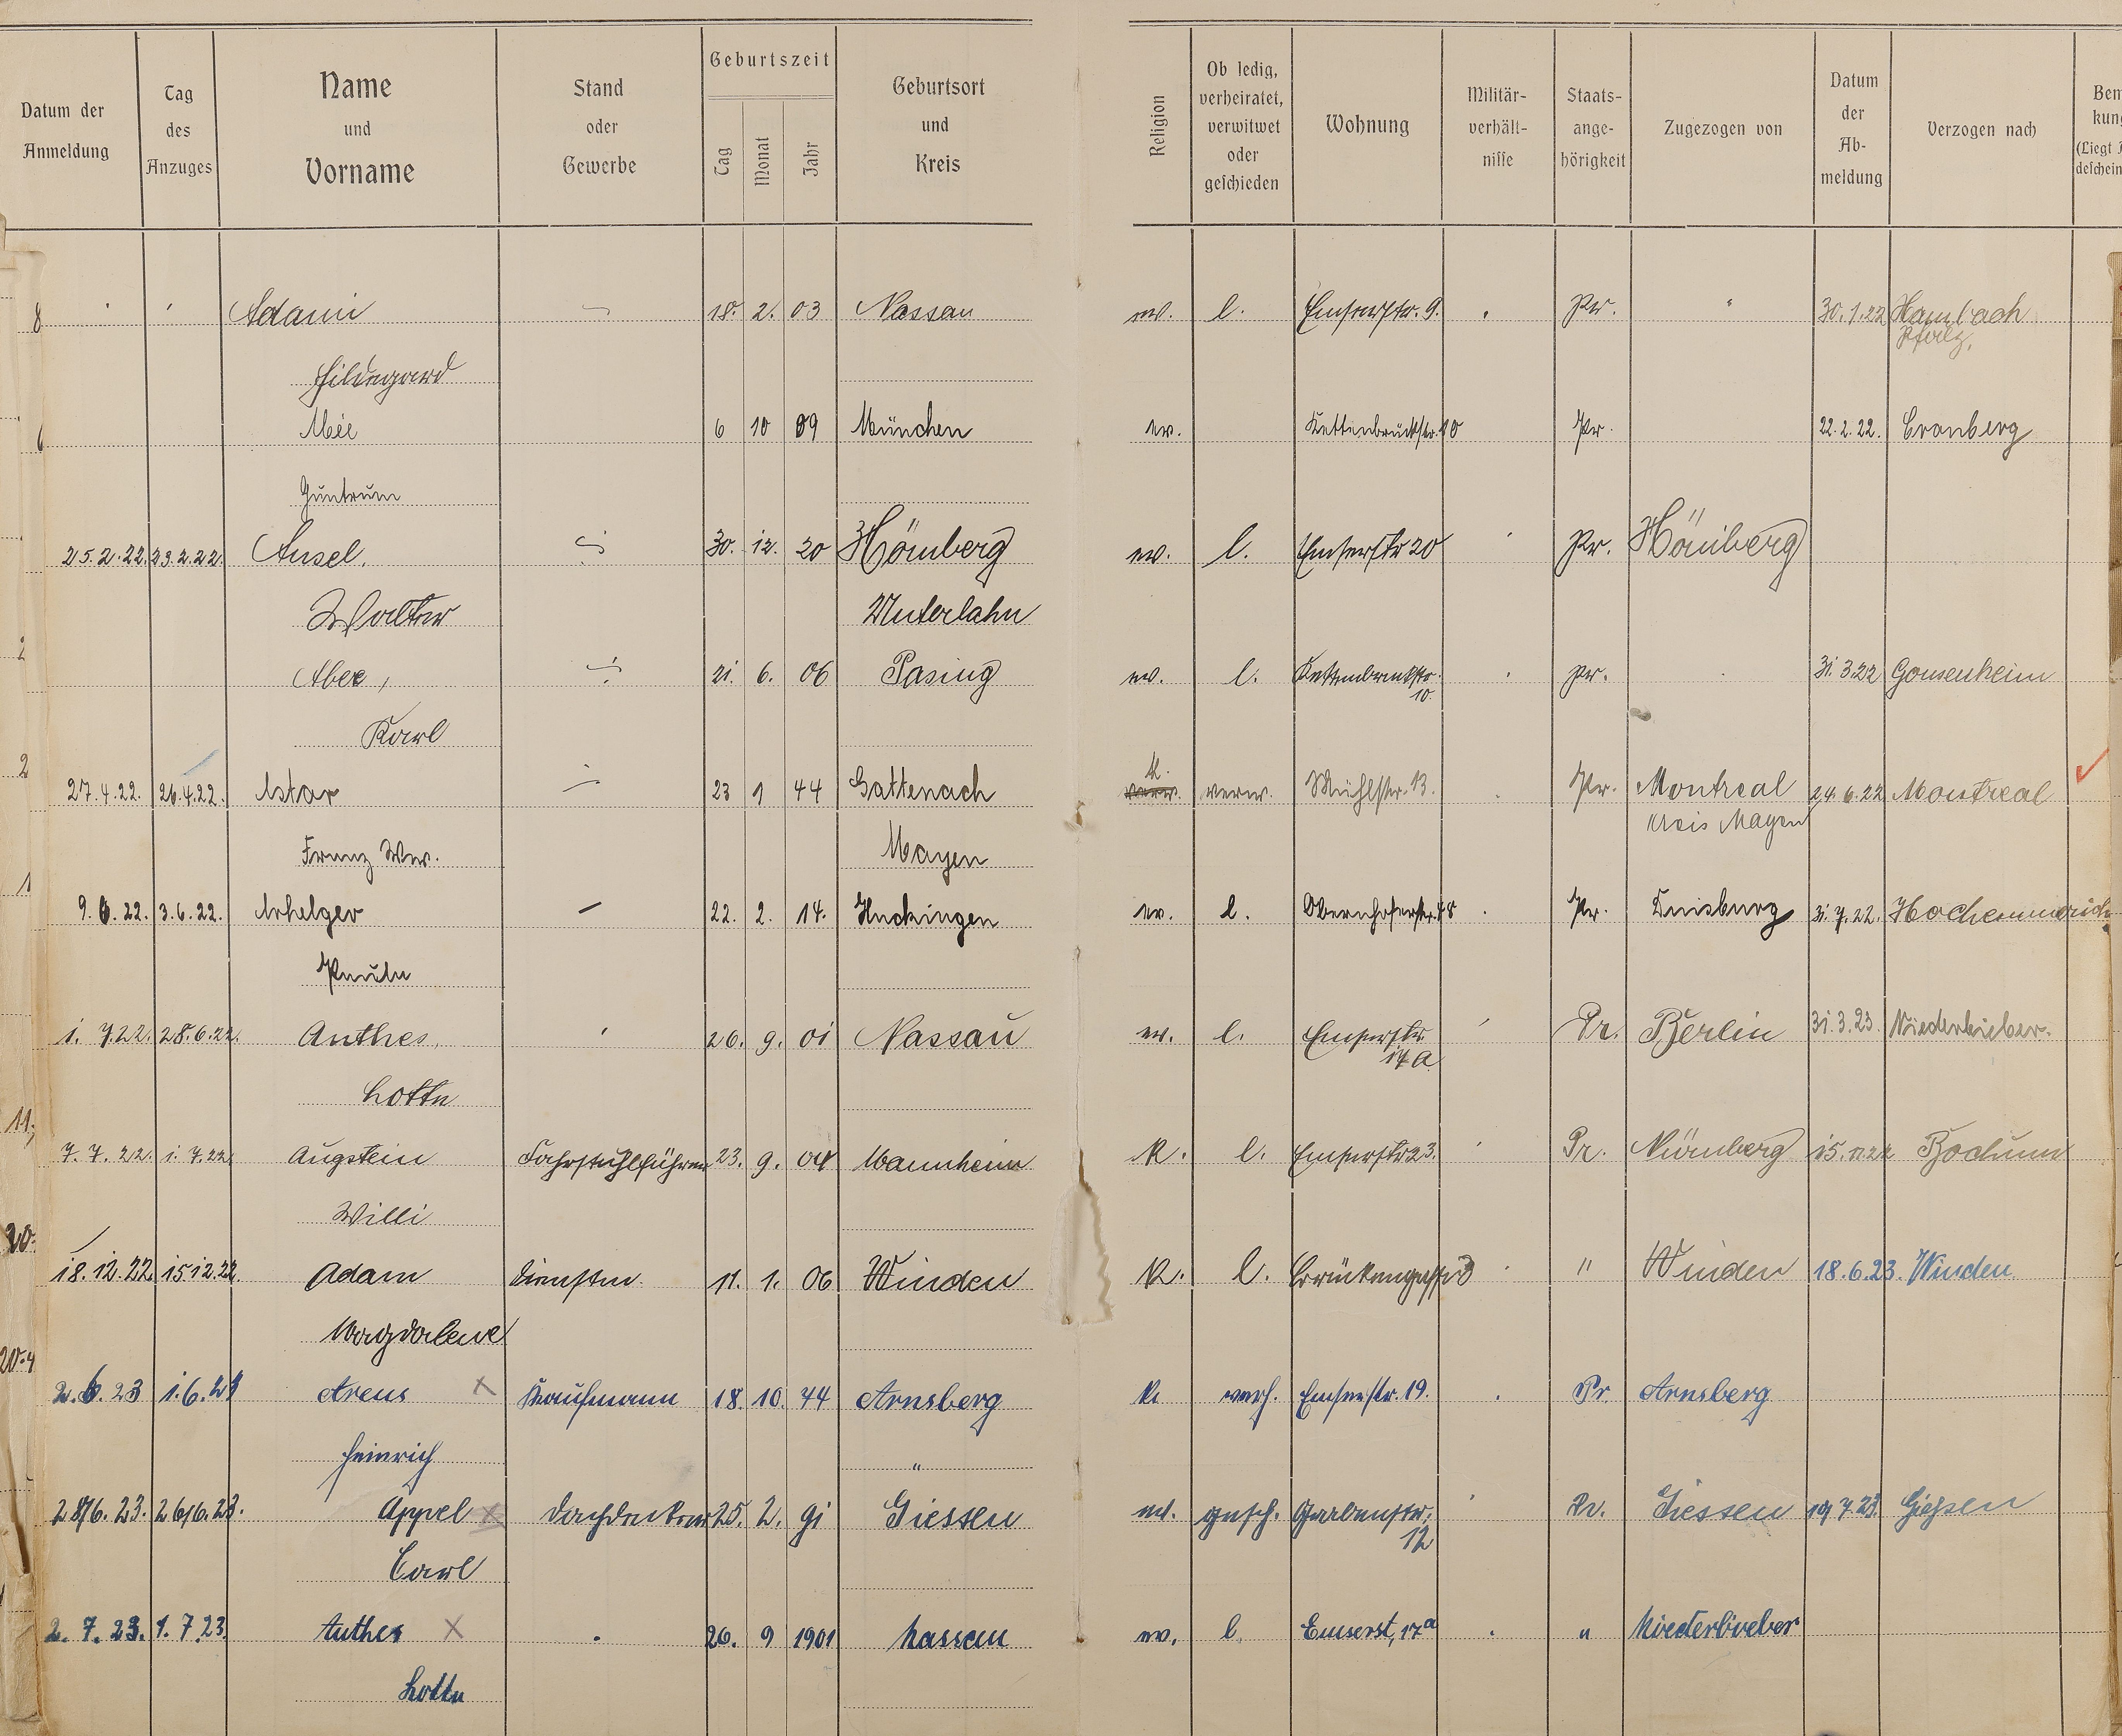 Datum der Anmeldung | Tag des Anzuges | Name und Vorname | Stand oder Gewerbe | Geburtszeit Tag Monat Jahr | Geburtsort und Kreis | Religion | Ob ledig, verheiratet, verwitwet oder geschieden | Wohnung | Militär-verhält-nisse | Staats-ange-hörigkeit | Zugezogen von | Datum der Ab-meldung | Verzogen nach
Adami 18. 2. 03 Nassau ev. l. Emserstr. 9. Pr. " 30.1.22 Hambach
Pfalz.
Hildegard
6 10 09 München ev. Kettenbrückstr. 10 Pr. 22.2.22. Cronberg
Guntrum
25.2.22. 23.2.22. Ansel, 30. 12. 20 Hömberg ev. l. Emserstr 20 Pr. Hömberg
Walter Unterlahn
21. 6. 06 Pasing ev. l. Kettenbrückstr. 10. Pr. 31.3.22 Gonsenheim
Karl
27.4.22. 26.4.22. Astor 23 1 44 Gattenach K. verw. Mühlstr. 13. Pr. Montreal 24.6.22 Montreal
Kreis Mayen
Franz Wer. Mayen
9.6.22. 3.6.22. Arhelger 22. 2. 14. Huckingen ev. l. Obernhoferstr. 48 Pr. Duisburg 31.7.22. Hochemmerich
Paula
1. 7.22. 28.6.22. Anthes, 26. 9. 01 Nassau ev. l. Emserstr. 17a Pr. Berlin 31.3.23. Niederbieber.
Lotte
7.7.22. 1.7.22. Augstein Fahrstuhlführer 23. 9. 04 Mannheim K. l. Emserstr 23. Pr. Nürnberg 15.11.22 Bochum
Willi
18.12.22. 15.12.22. Adam 11. 1. 06 Winden K. l. " Winden 18.6.23. Winden
Magdalene
2.6.23 1.6.21 Arens x Kaufmann 18. 10. 44 Arnsberg K. verh. Emserstr. 19. Pr. Arnsberg
Heinrich "
26.6.23. Appel x Dachdecker 25. 2. 91 Giessen ev. gesch. Grabenstr. 12 Pr. Giessen 19.7.23. Giessen
Carl
2.7.23. 1.7.23. Anthes x 26. 9 1901 Nassau ev. l. Emserst, 17a " Niederbieber
Lotte